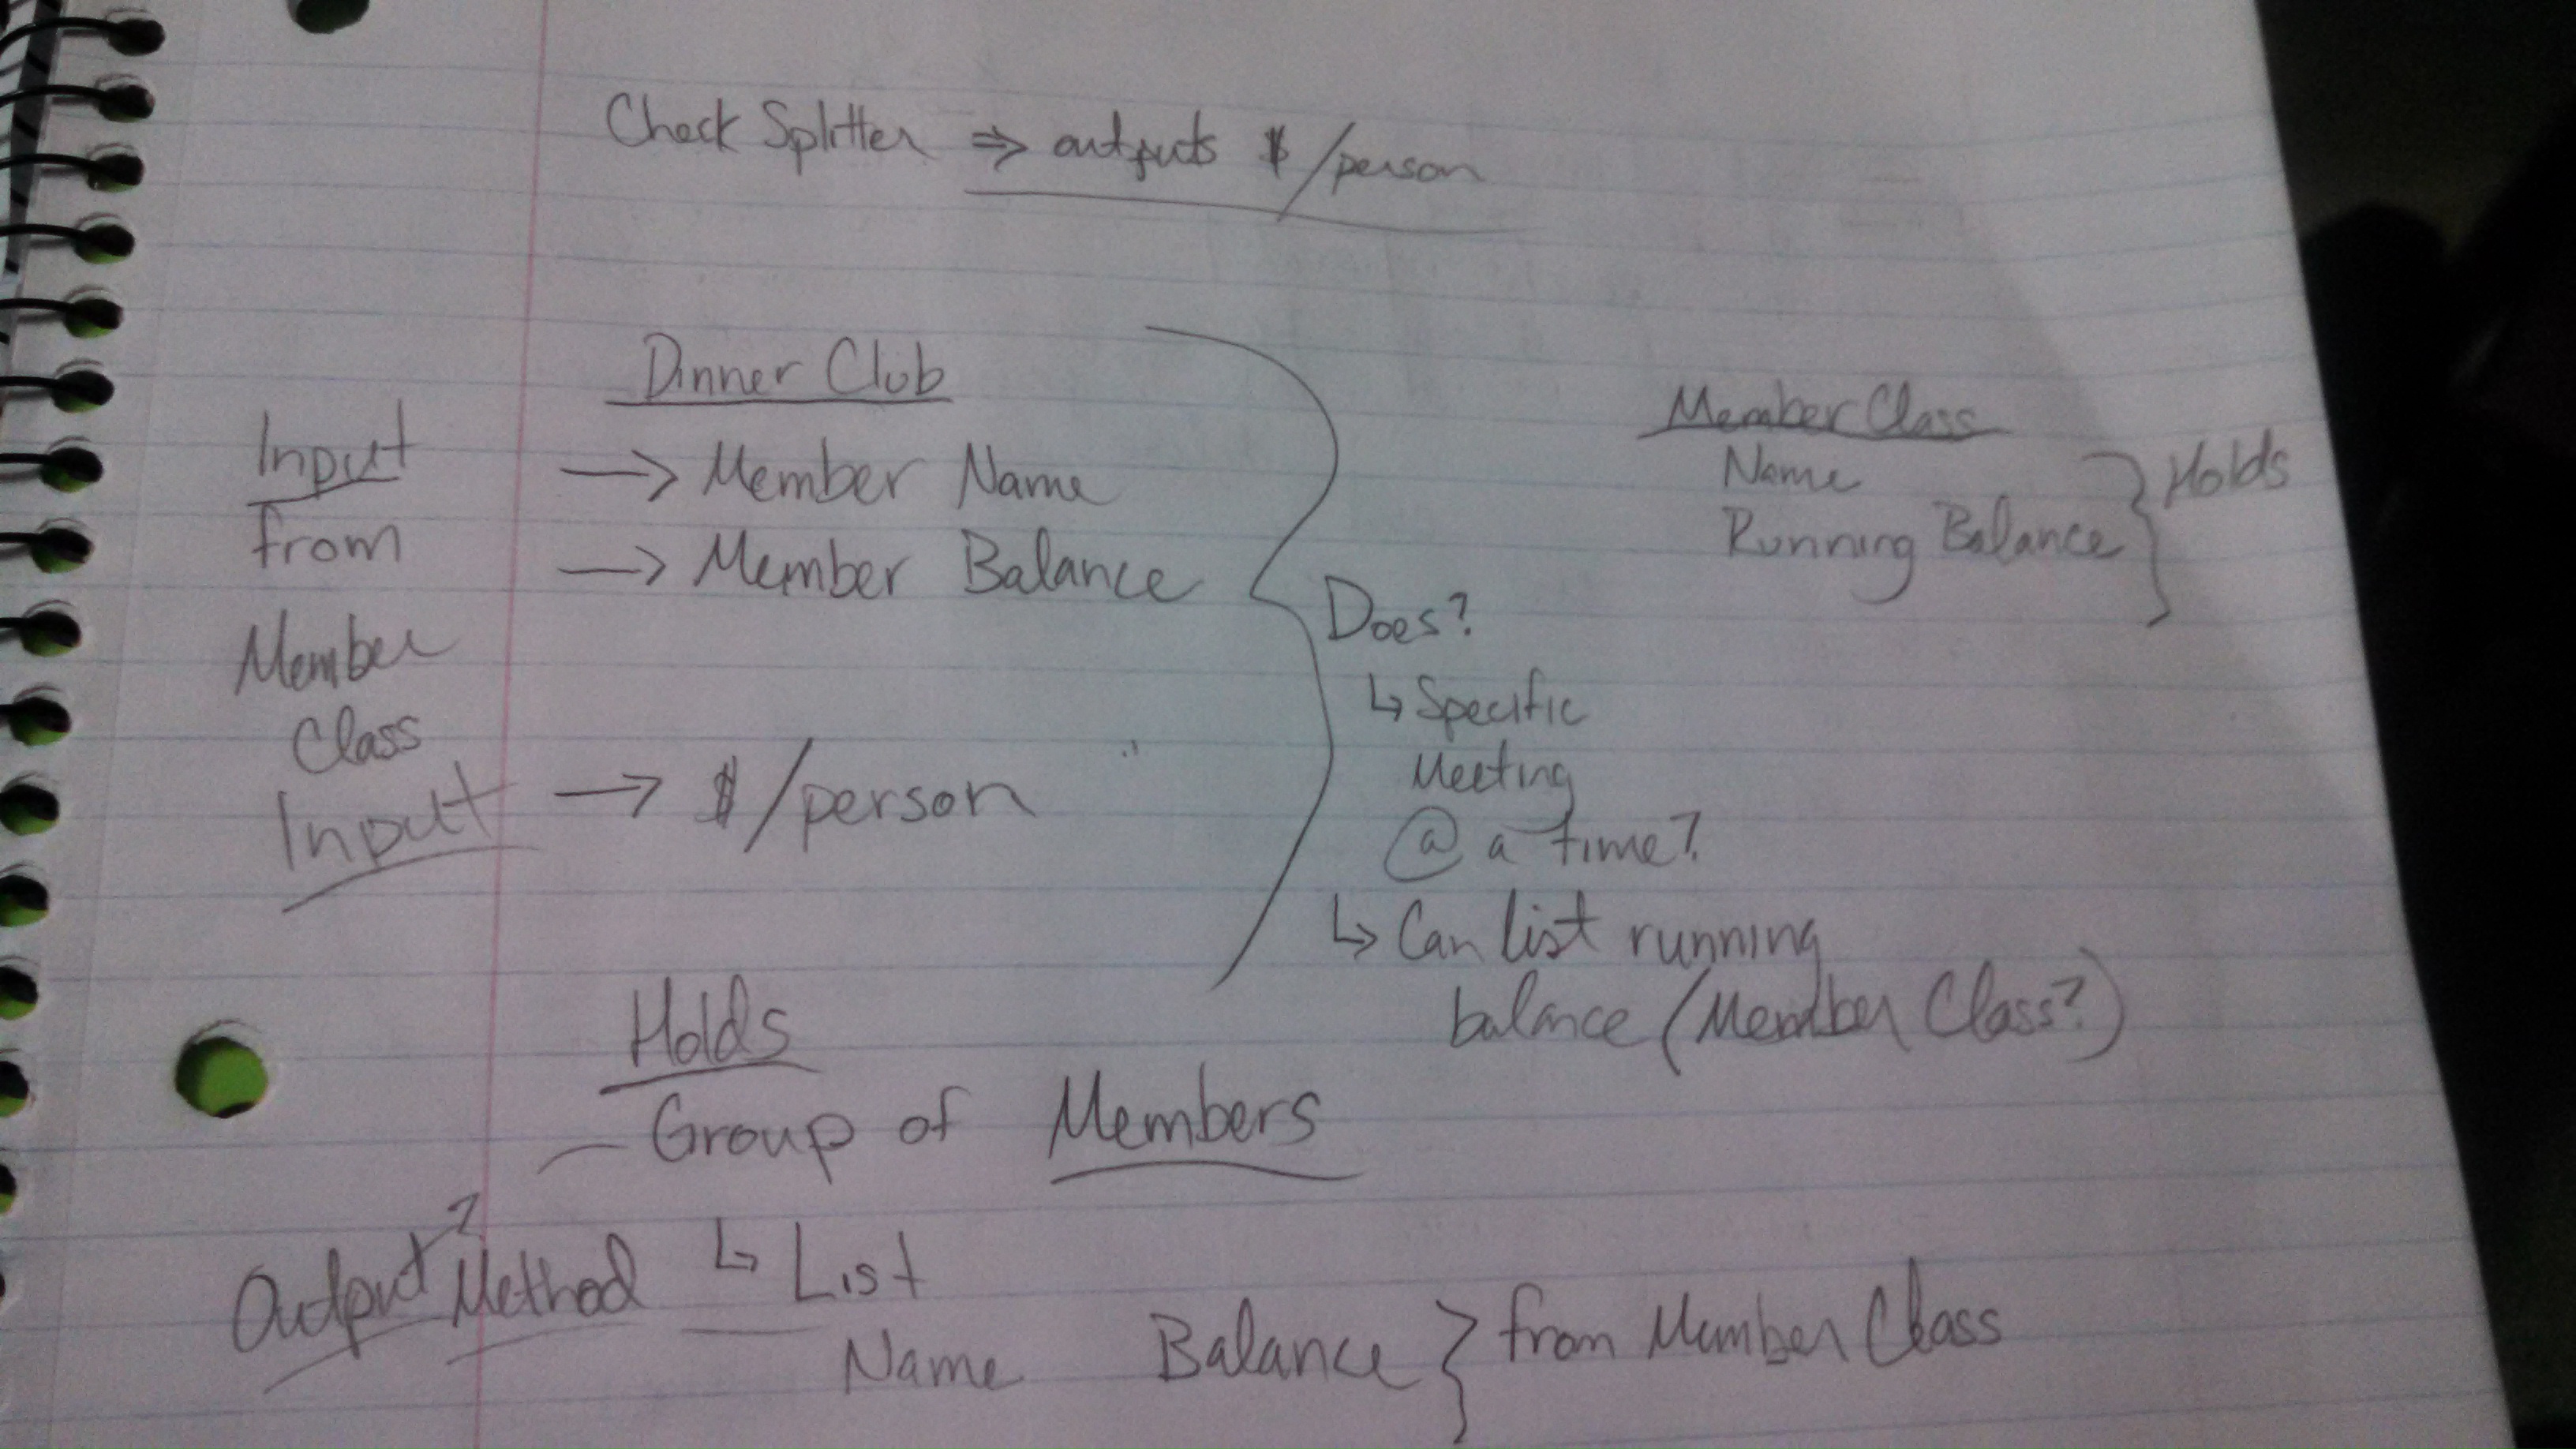 Check Splitter ⇒ outputs $/person
Dinner Club
Input → Member Name
from → Member Balance
Member
Class
Input → $/person
Does?
↳ Specific
Meeting
@ a time?
↳ Can list running
balance (Member Class?)
Member Class
Name
Running Balance } Holds
Holds
— Group of Members
Output Method? ↳ List
Name Balance } from Member Class